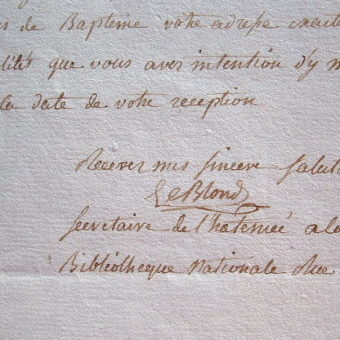 de Bapteme votre adresse exacte
lités que vous avez intention d'y m
la date de votre reception
Recevez mes sincere saluta
LeBlond
Secretaire de l'hatenée a la
Bibliotheque Nationale Rue